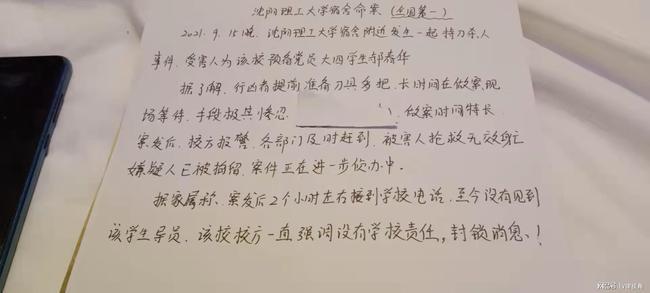 沈阳理工大学宿舍命案（全国第一）
2021.9.15晚，沈阳理工大学宿舍附近发生一起持刀杀人
事件，受害人为该校预备党员大四学生郝春华
据了解，行凶者提前准备刀具多把，长时间在做案现
场等待，手段极其惨忍，做案时间特长
案发后，校方报警，各部门及时赶到，被害人抢救无效死亡
嫌疑人已被拘留，案件正在进一步侦办中。
据家属称，案发后2个小时左右接到学校电话，至今没有见到
该学生导员，该校校方一直强调没有学校责任，封锁消息、！